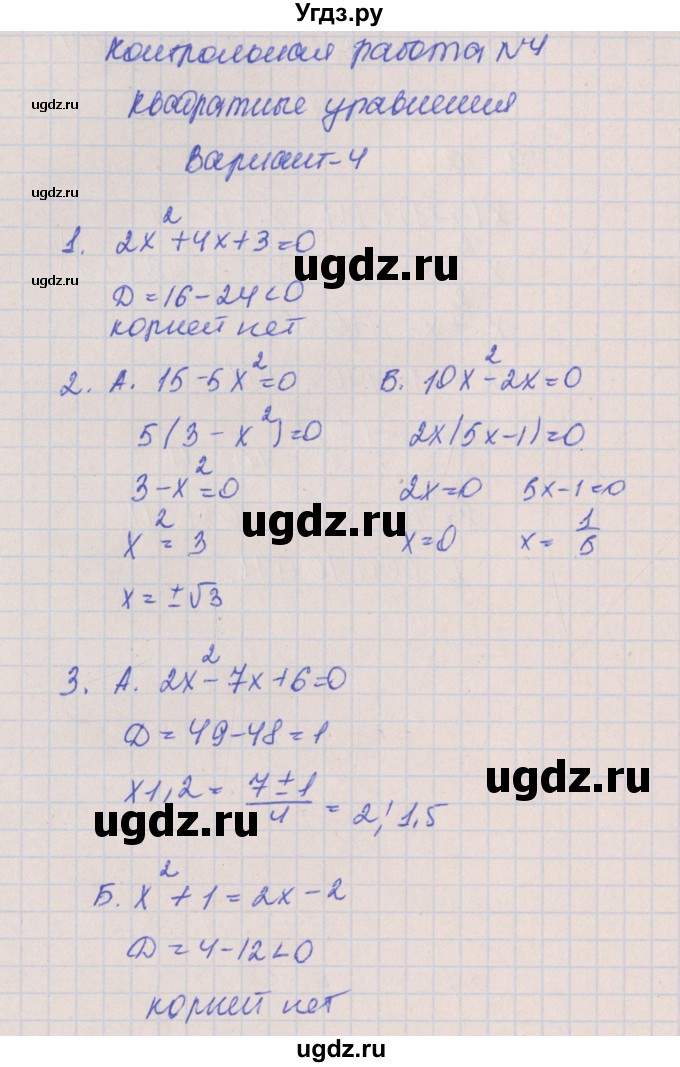 Угдз.ру
Контрольная работа №4
Квадратные уравнения
Вариант-4
ugdz.ru
ugdz.ru
ugdz.ru
1. 2x²+4x+3=0
ugdz.ru
D=16-24<0
корней нет
2. А. 15-5x²=0
5(3-x²)=0
3-x²=0
x²=3
x=±√3
В. 10x²-2x=0
2x(5x-1)=0
2x=0 5x-1=0
x=0 x=1/5
ugdz.ru
3. А. 2x²-7x+6=0
D=49-48=1
x1,2=(7±1)/4=2; 1,5
ugdz.ru
ugdz.ru
Б. x²+1=2x-2
D=4-12<0
корней нет
ugdz.ru